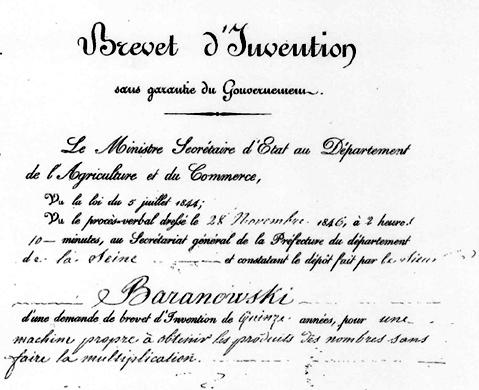 Brevet d'Invention
sans garantie du Gouvernement.
Le Ministre Secrétaire d'État au Département
de l'Agriculture et du Commerce,
Vu la loi du 5 juillet 1844;
Vu le procès-verbal dressé le 28 Novembre 1846, à 2 heures
10 — minutes, au Secrétariat général de la Préfecture du département
de la Seine et constatant le dépôt fait par le Sieur
Baranowski
d'une demande de brevet d'Invention de Quinze années, pour une
machine propre à obtenir les produits des nombres sans
faire la multiplication.